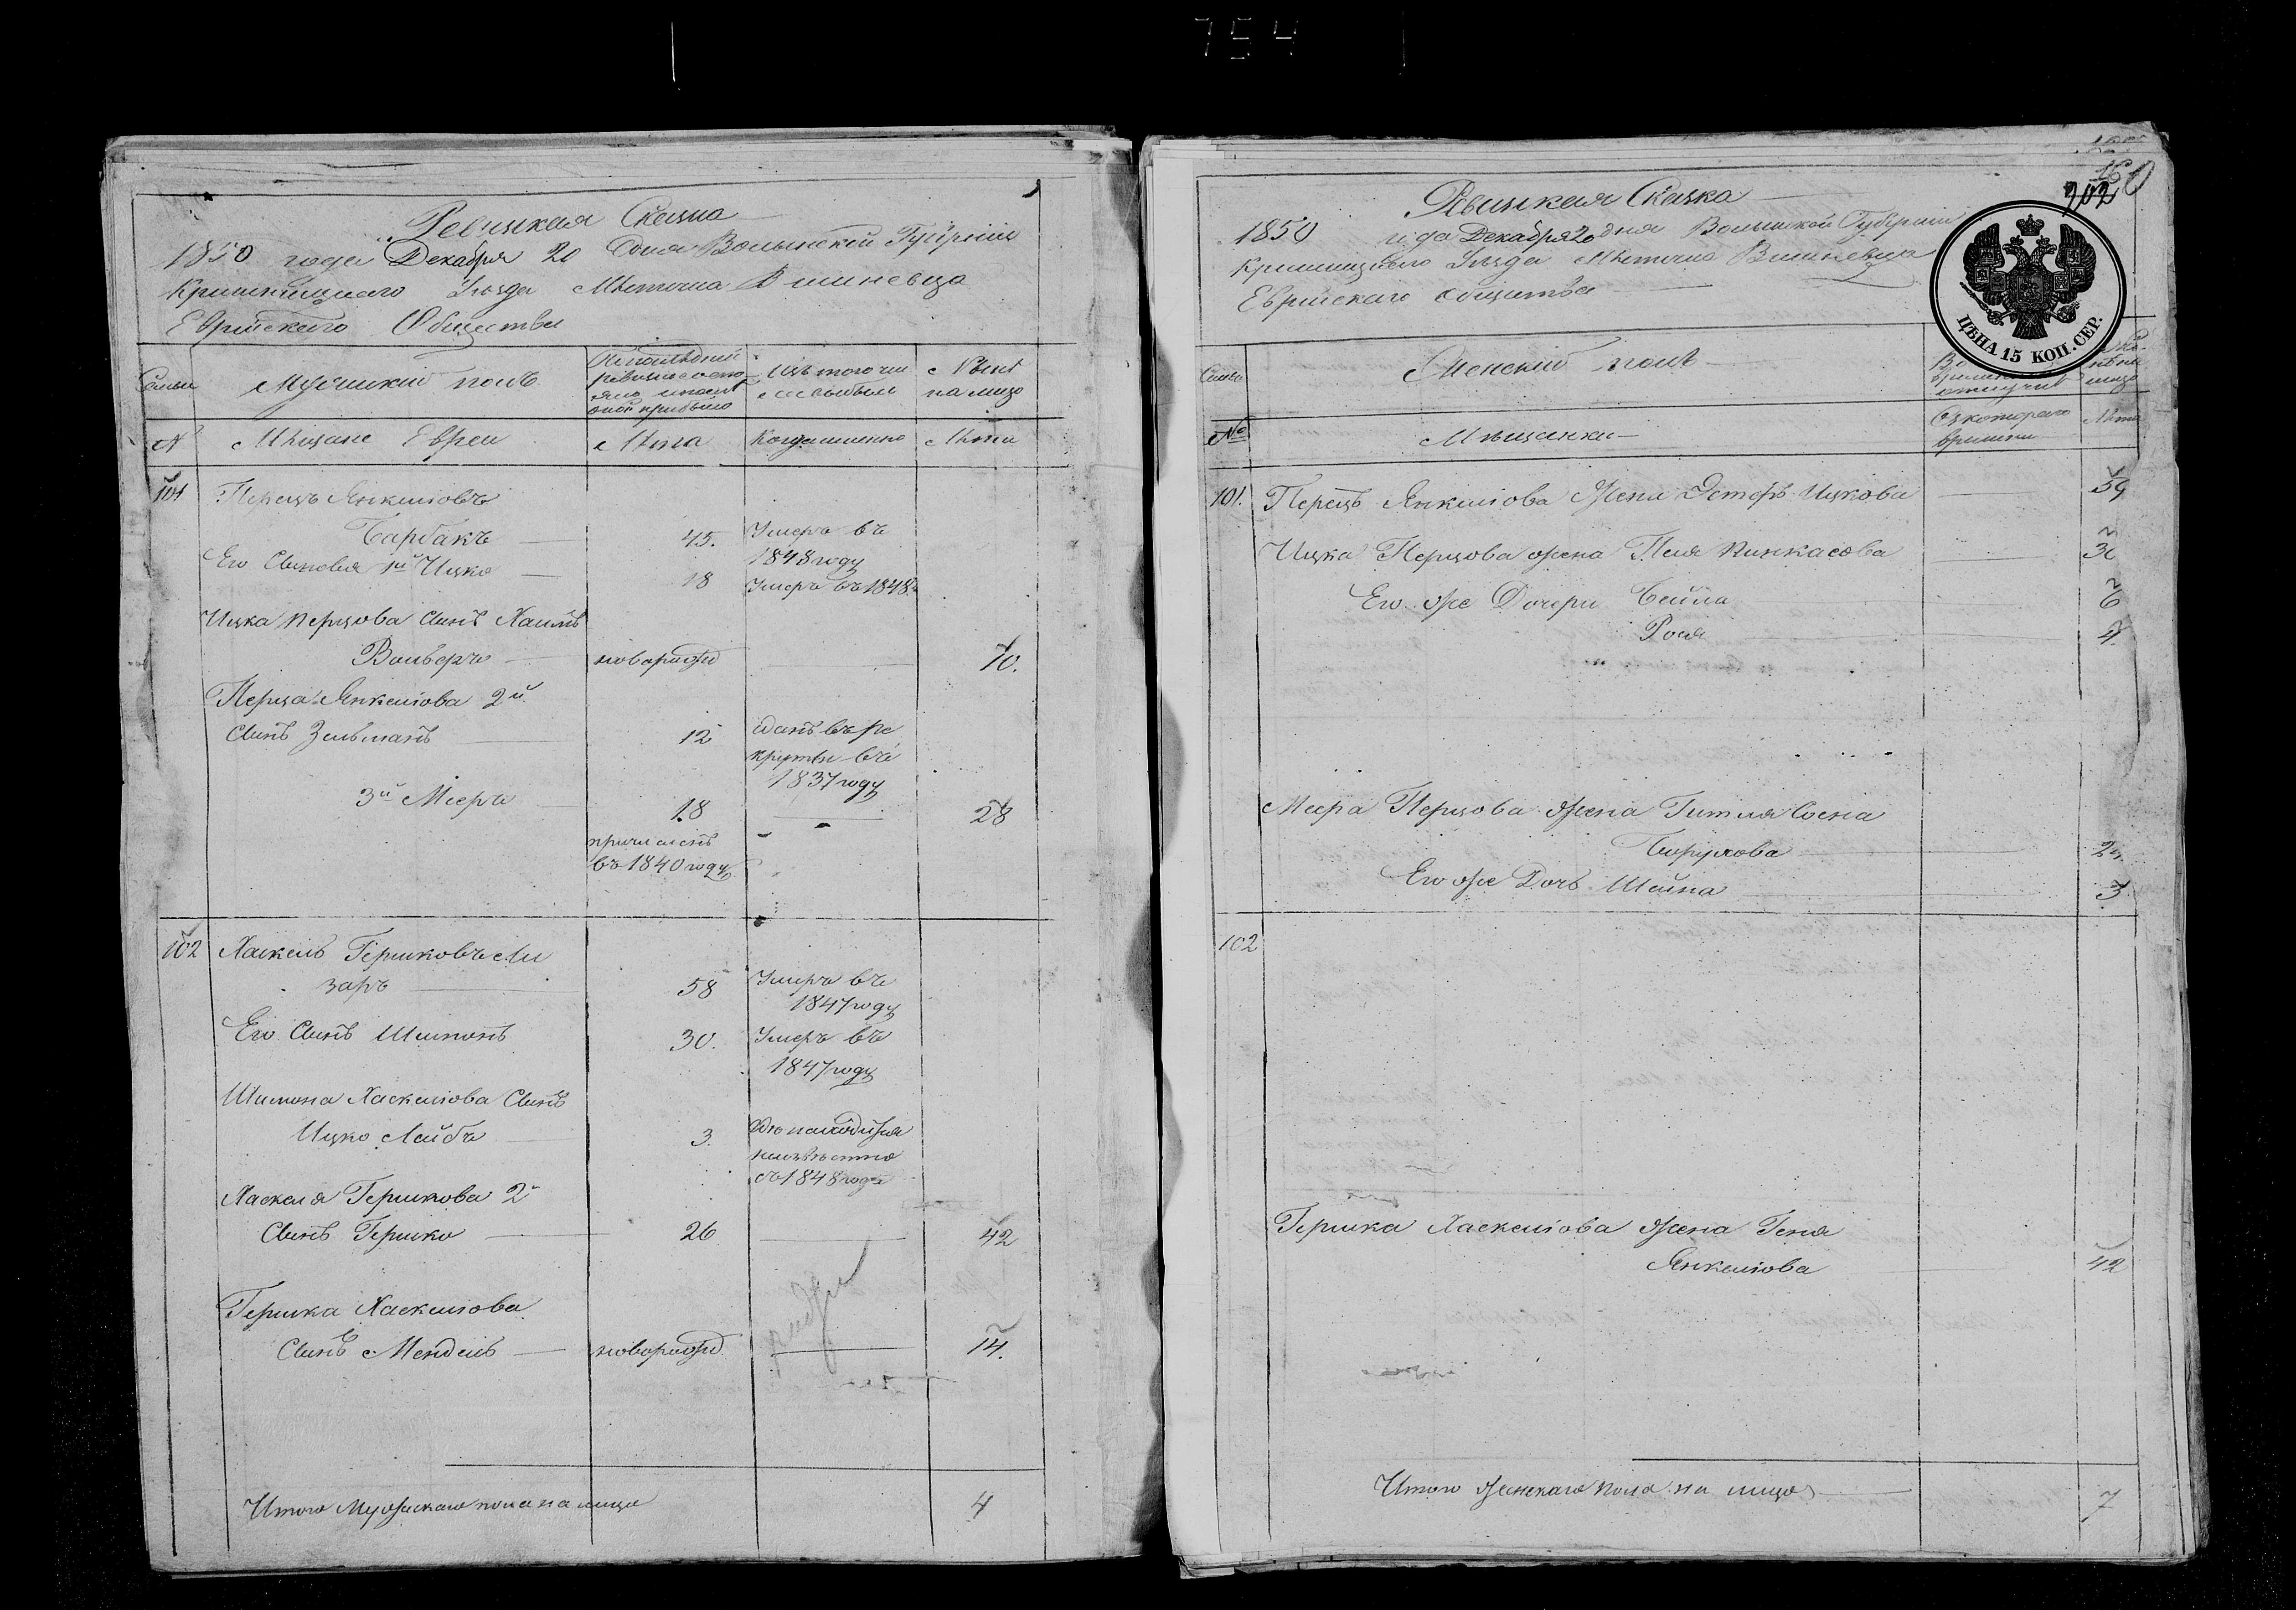 754
Ревизская Сказка
1850 года Декабря 20 дня Волынской Губернии
Кременецкаго Уѣзда Мѣстечка Вишневца
Еврейскаго Общества
Семьи
Мужескій полъ
По последней
ревизіи состо
яло и после
оной прибыло
Изъ того чи
сла выбыло
Нынѣ
на лицо
№
Мѣщане Евреи
Лѣта
Когда именно
Лѣта
101
Перецъ Янкелiовъ
Барбакъ
45.
Умеръ въ
1848 году
Его Сыновья 1й Ицко
18
Умеръ въ 1848
Ицка Перцова Сынъ Хаимъ
Вольверъ
новорожд
10.
Перца Янкелiова 2й
Сынъ Зельманъ
12
Сданъ въ ре
круты въ
1837 году
3й Мееръ
18
28
причисленъ
въ 1840 году
102
Хаскель Гершковъ Ли
заръ
58
Умеръ въ
1847 году
Его Сынъ Шимонъ
30.
Умеръ въ
1847 году
Шимона Хаскелiова Сынъ
Ицко Лейбъ
3.
неизвѣстно
съ 1848 года
Хаскеля Гершкова 2й
Сынъ Гершко
26
42
Гершка Хаскелiова
Сынъ Мендель
новорожд
14.
Итого Мужескаго пола на лицо
4
160
202
Ревизская Сказка
1850 года Декабря 20 дня Волынской Губерніи
Кременецкаго Уѣзда Мѣстечка Вишневца
Еврейскаго Общества
ЦѢНА 15 КОП. СЕР.
Семьи
Женскій полъ
№
Мѣщанки
Съ котораго
времени
Лѣта
101.
Перецъ Янкелiова Жена Эстеръ Ицкова
59
Ицка Перцова жена Песя Пинкасова
30
Его же Дочери Бейла
6
Рося
4
Меера Перцова Жена Гитля Сосна
Борухова
24
Его же Дочь Шейна
3.
102
Гершка Хаскелiова Жена Геня
Янкелiова
42
Итого женскаго пола на лицо
7